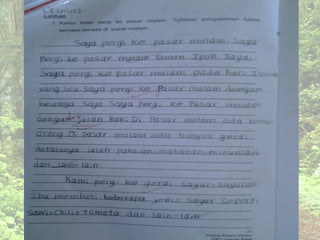 Latihan
1. Kamu telah pergi ke pasar malam. Tuliskan pengalaman kamu
semasa berada di pasar malam.
Saya pergi ke pasar malam. Saya
Pergi ke pasar malam Taman Ipoh Jaya.
Saya pergi ke pasar malam pada hari Isnin
yang lalu Saya pergi ke Pasar malam dengan
keluarga Saya Saya pergi ke Pasar malam
dengan Jalan Kaki Di Pasar malam ada
Orang Di pasar malam ada banyak gerai
Antaranya ialah pakaian, makanan, minuman
dan lain-lain
Kami pergi ke gerai sayur-sayuran
Ibu membeli beberapa jenis sayur seperti
Sawi chili tomato dan lain-lain